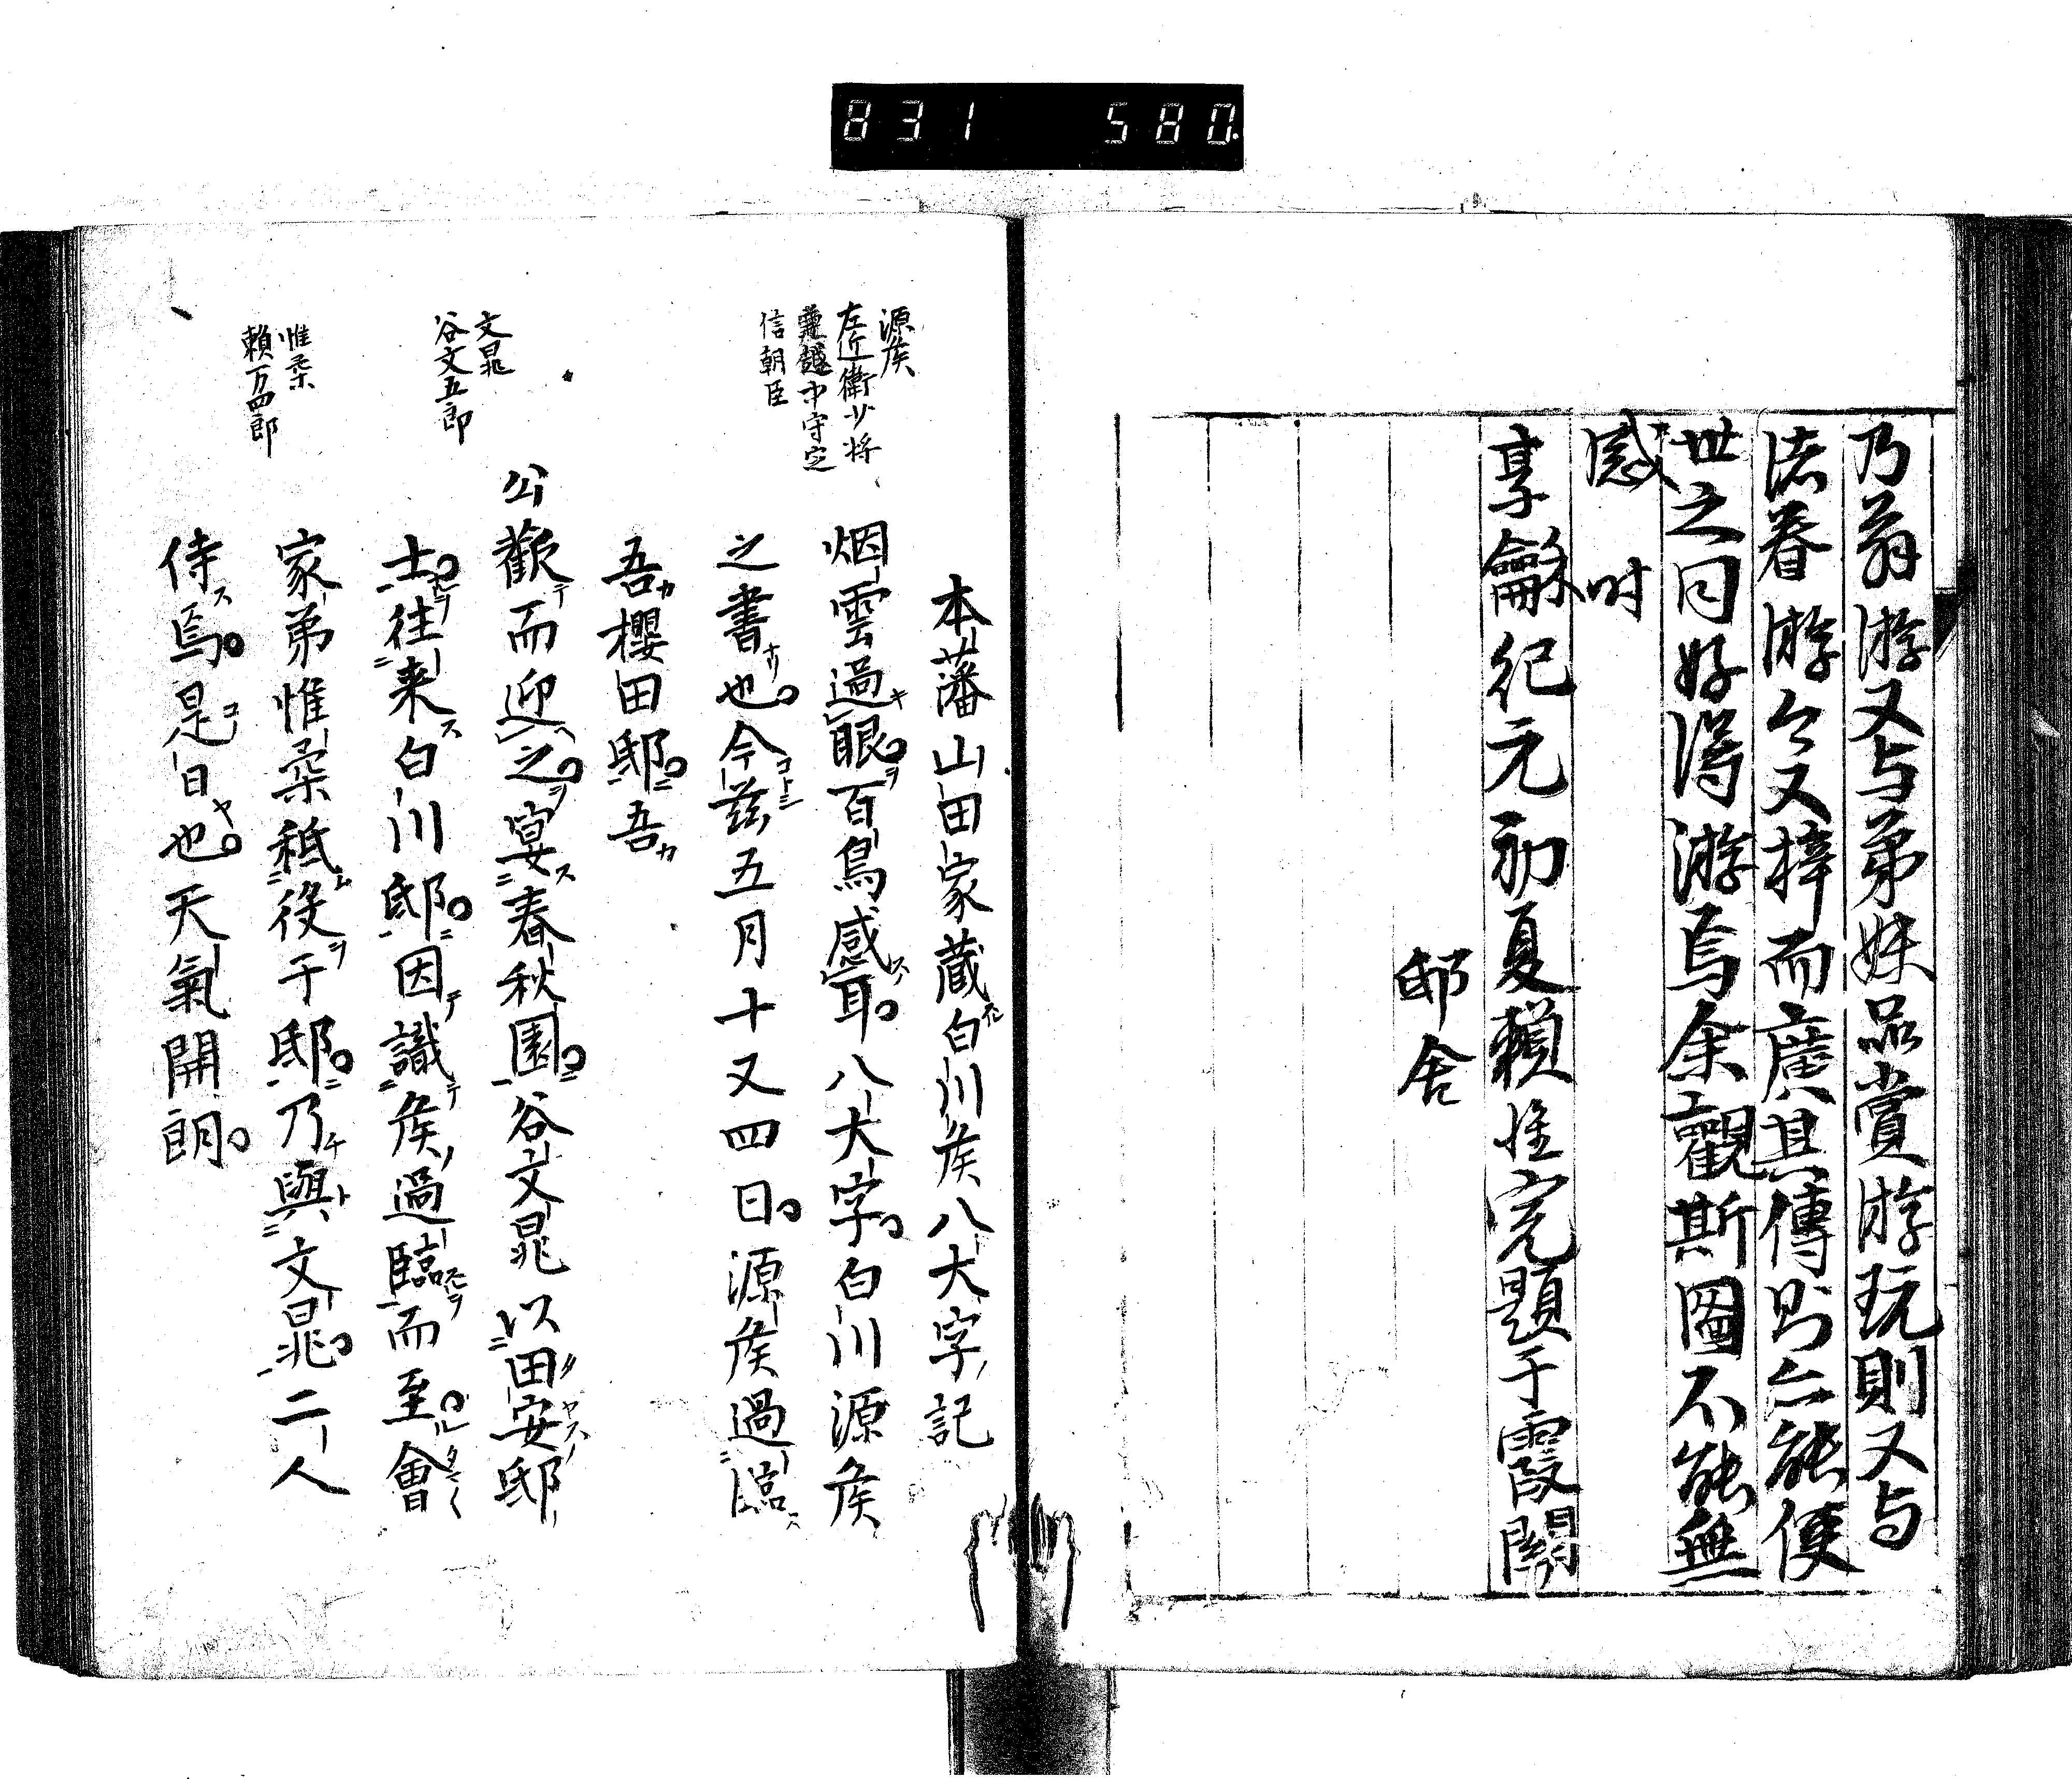 831 580
乃翁游又与弟妹品賞游玩則又与
諸眷游今又梓而廣其傳則亦能便
世之同好得游焉余觀斯圖不能無
感 时
享龢紀元初夏賴惟完題于霞關
邸舍
本藩山田家蔵白川矦八大字記
源矦
左近衛少将
兼越中守定
信朝臣
烟雲過眼百鳥感耳八大字白川源矦
之書也今茲五月十又四日源矦過臨
吾櫻田邸吾
公歡而迎之宴春秋園谷文晁以田安邸
文晁
谷文五郎
士往来白川邸因識矦過臨而至會
家弟惟柔祗役于邸乃與文晁二人
惟柔
賴万四郎
侍焉是日也天氣開朗